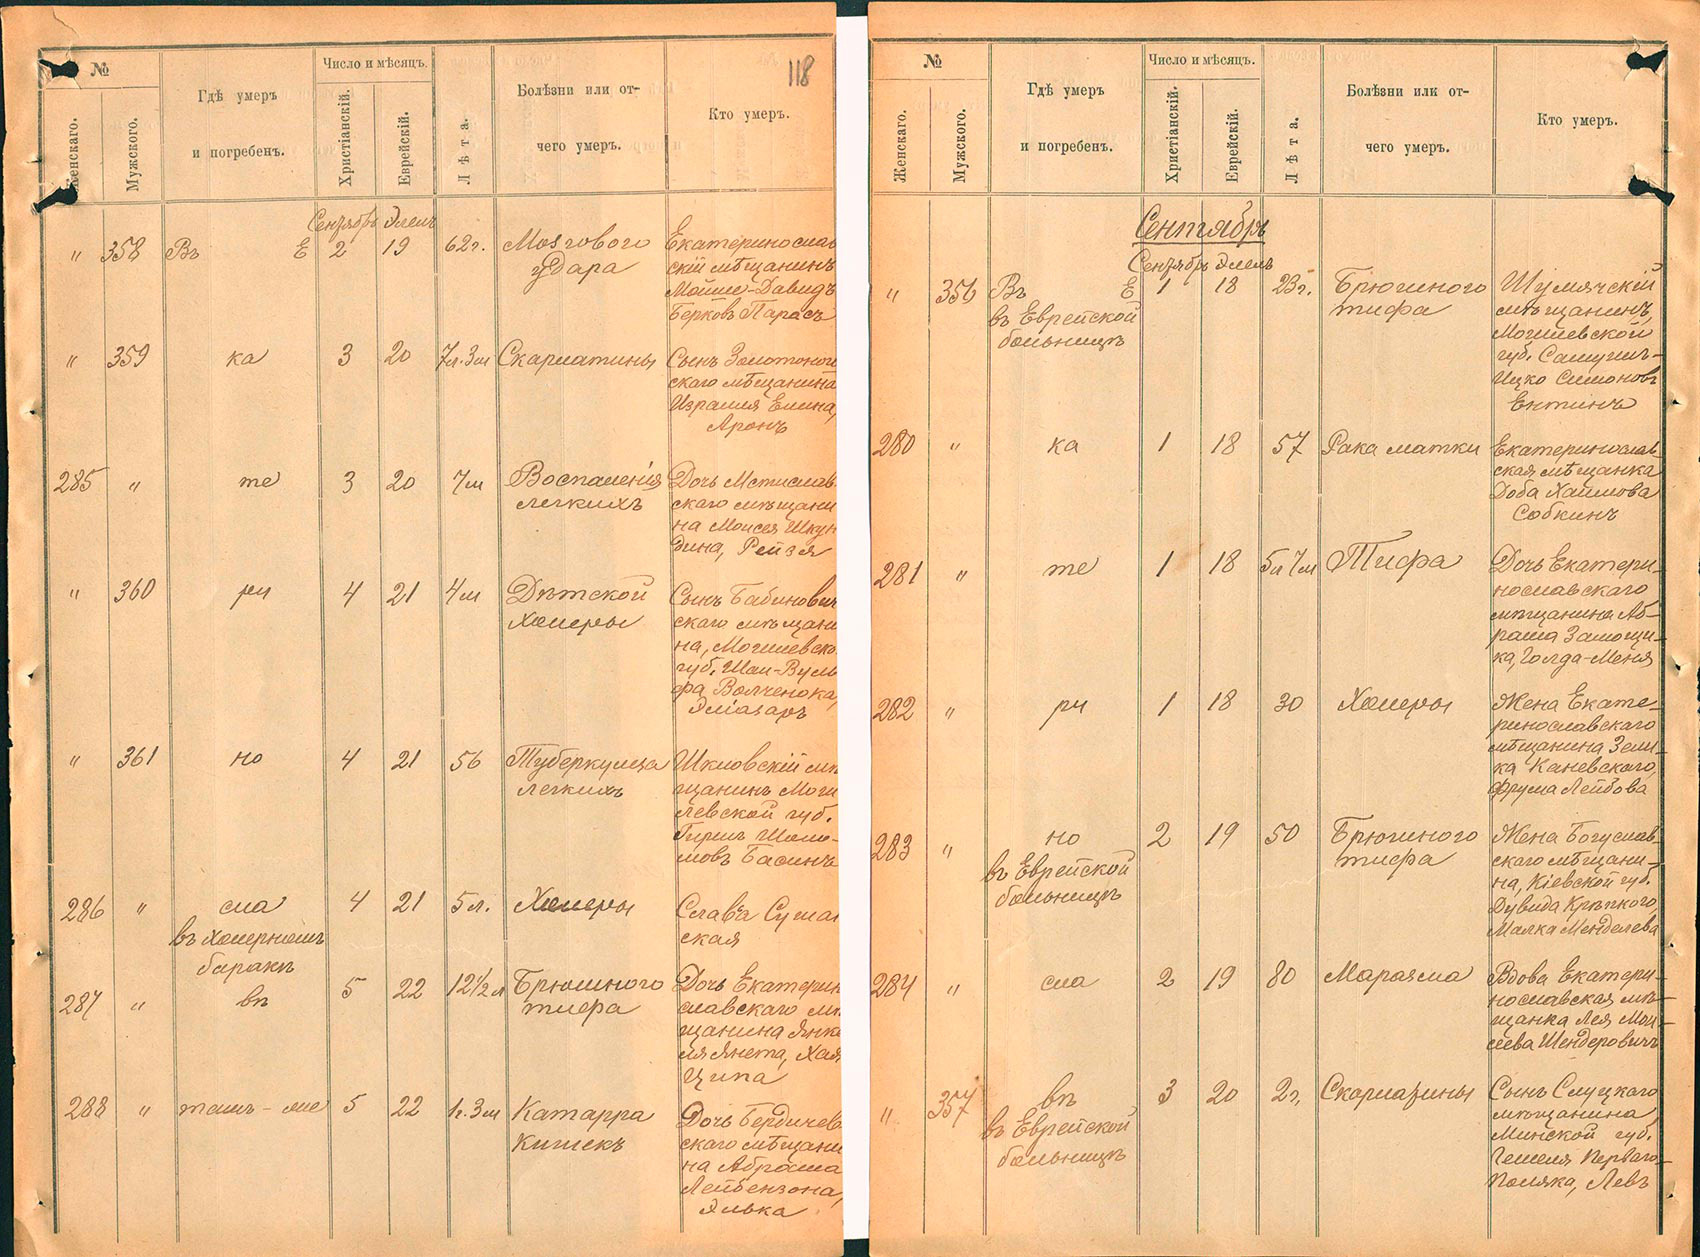 118
№
Женскаго.
Мужского.
Гдѣ умеръ
и погребенъ.
Число и мѣсяцъ.
Христіанскій.
Еврейскій.
Лѣта.
Болѣзни или от-
чего умеръ.
Кто умеръ.
Сентябрь Элелъ
" 358 Въ Е 2 19 62г. Мозгового
удара
Екатеринослав
скій мѣщанинъ
Мойше-Давидъ
Берковъ Парасъ
" 359 ка 3 20 7л.3м Скарлатины
Сынъ Золотоног
скаго мѣщанина
Израиля Елина,
Аронъ
285 " те 3 20 7м Воспаленія
легкихъ
Дочь Мстислав
скаго мѣщани
на Моисея Шкун
дина, Рейзя
" 360 ри 4 21 4м Дѣтской
Холеры
Сынъ Бабинович
скаго мѣщани
на, Могилевско
губ. Шаи-Вуль
фа Волченока,
Эліазаръ
" 361 но 4 21 56 Туберкулеза
легкихъ
Шкловскій мѣ
щанинъ Моги
левской губ.
Гирш Шоло-
мовъ Басинъ
286 " сла 4 21 5л. Холеры
въ Холерномъ
баракѣ
Славъа
ская
287 " вѣ 5 22 12½л Брюшного
тифа
Дочь Екатерин
славскаго мѣ
щанина Янке
ля Янета, Хая
Ципа
288 " томъ-же 5 22 1г.3м Катарра
Кишекъ
Дочь Бердичев
скаго мѣщани
на Аброма
Лейбензона,
Элька
№
Женскаго.
Мужского.
Гдѣ умеръ
и погребенъ.
Число и мѣсяцъ.
Христіанскій.
Еврейскій.
Лѣта.
Болѣзни или от-
чего умеръ.
Кто умеръ.
Сентябрь
Сентябрь Элелъ
" 356 Въ Е 1 18 23г. Брюшного
тифа
въ Еврейской
больницѣ
Шумячскій
мѣщанинъ,
Могилевской
губ. Самуилъ-
Ицко Симоновъ
Ентинъ
280 " ка 1 18 57 Рака матки
Екатеринослав
ская мѣщанка
Доба Хаимова
Собкинъ
281 " те 1 18 5л7м Тифа
Дочь Екатери-
нославскаго
мѣщанина Аб-
рама Замощи-
ка, Голда-Меня
282 " ри 1 18 30 Холеры
Жена Екате-
ринославскаго
мѣщанина Зели-
ка Каневскаго,
Фрума Лейбова
283 " но 2 19 50 Брюшного
тифа
въ Еврейской
больницѣ
Жена Богуслав-
скаго мѣщани-
на, Кіевской губ.
Дувида Крѣпкого
Малка Менделева
284 " сла 2 19 80 Маразма
Вдова Екатери-
нославская мѣ-
щанка Лея Мои-
сеева Шендеровичъ
" 357 вѣ 3 20 2г. Скарлатины
въ Еврейской
больницѣ
Сынъ Слуцкаго
мѣщанина
Минской губ.
Гешеля Перваго-
Поляка, Левъ